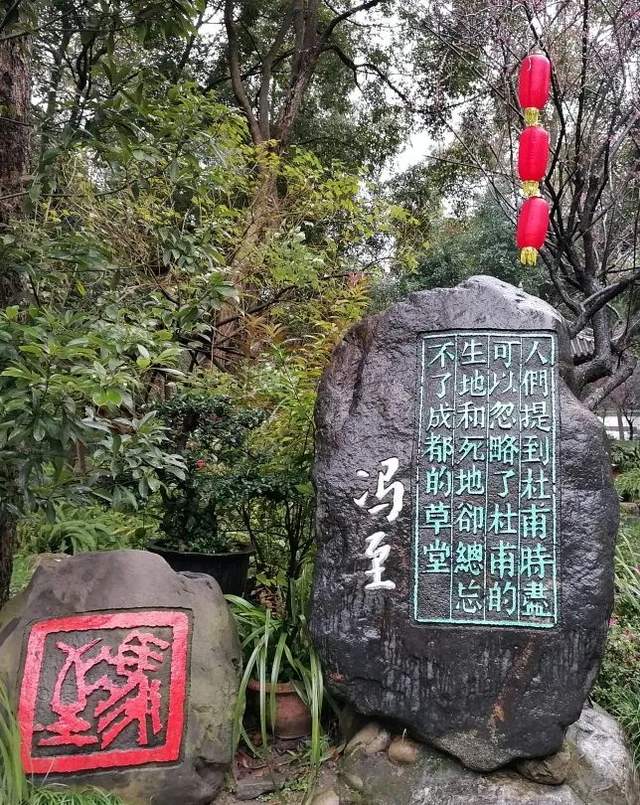 人們提到杜甫時盡
可以忽略了杜甫的
生地和死地卻總忘
不了成都的草堂
冯至
馮至